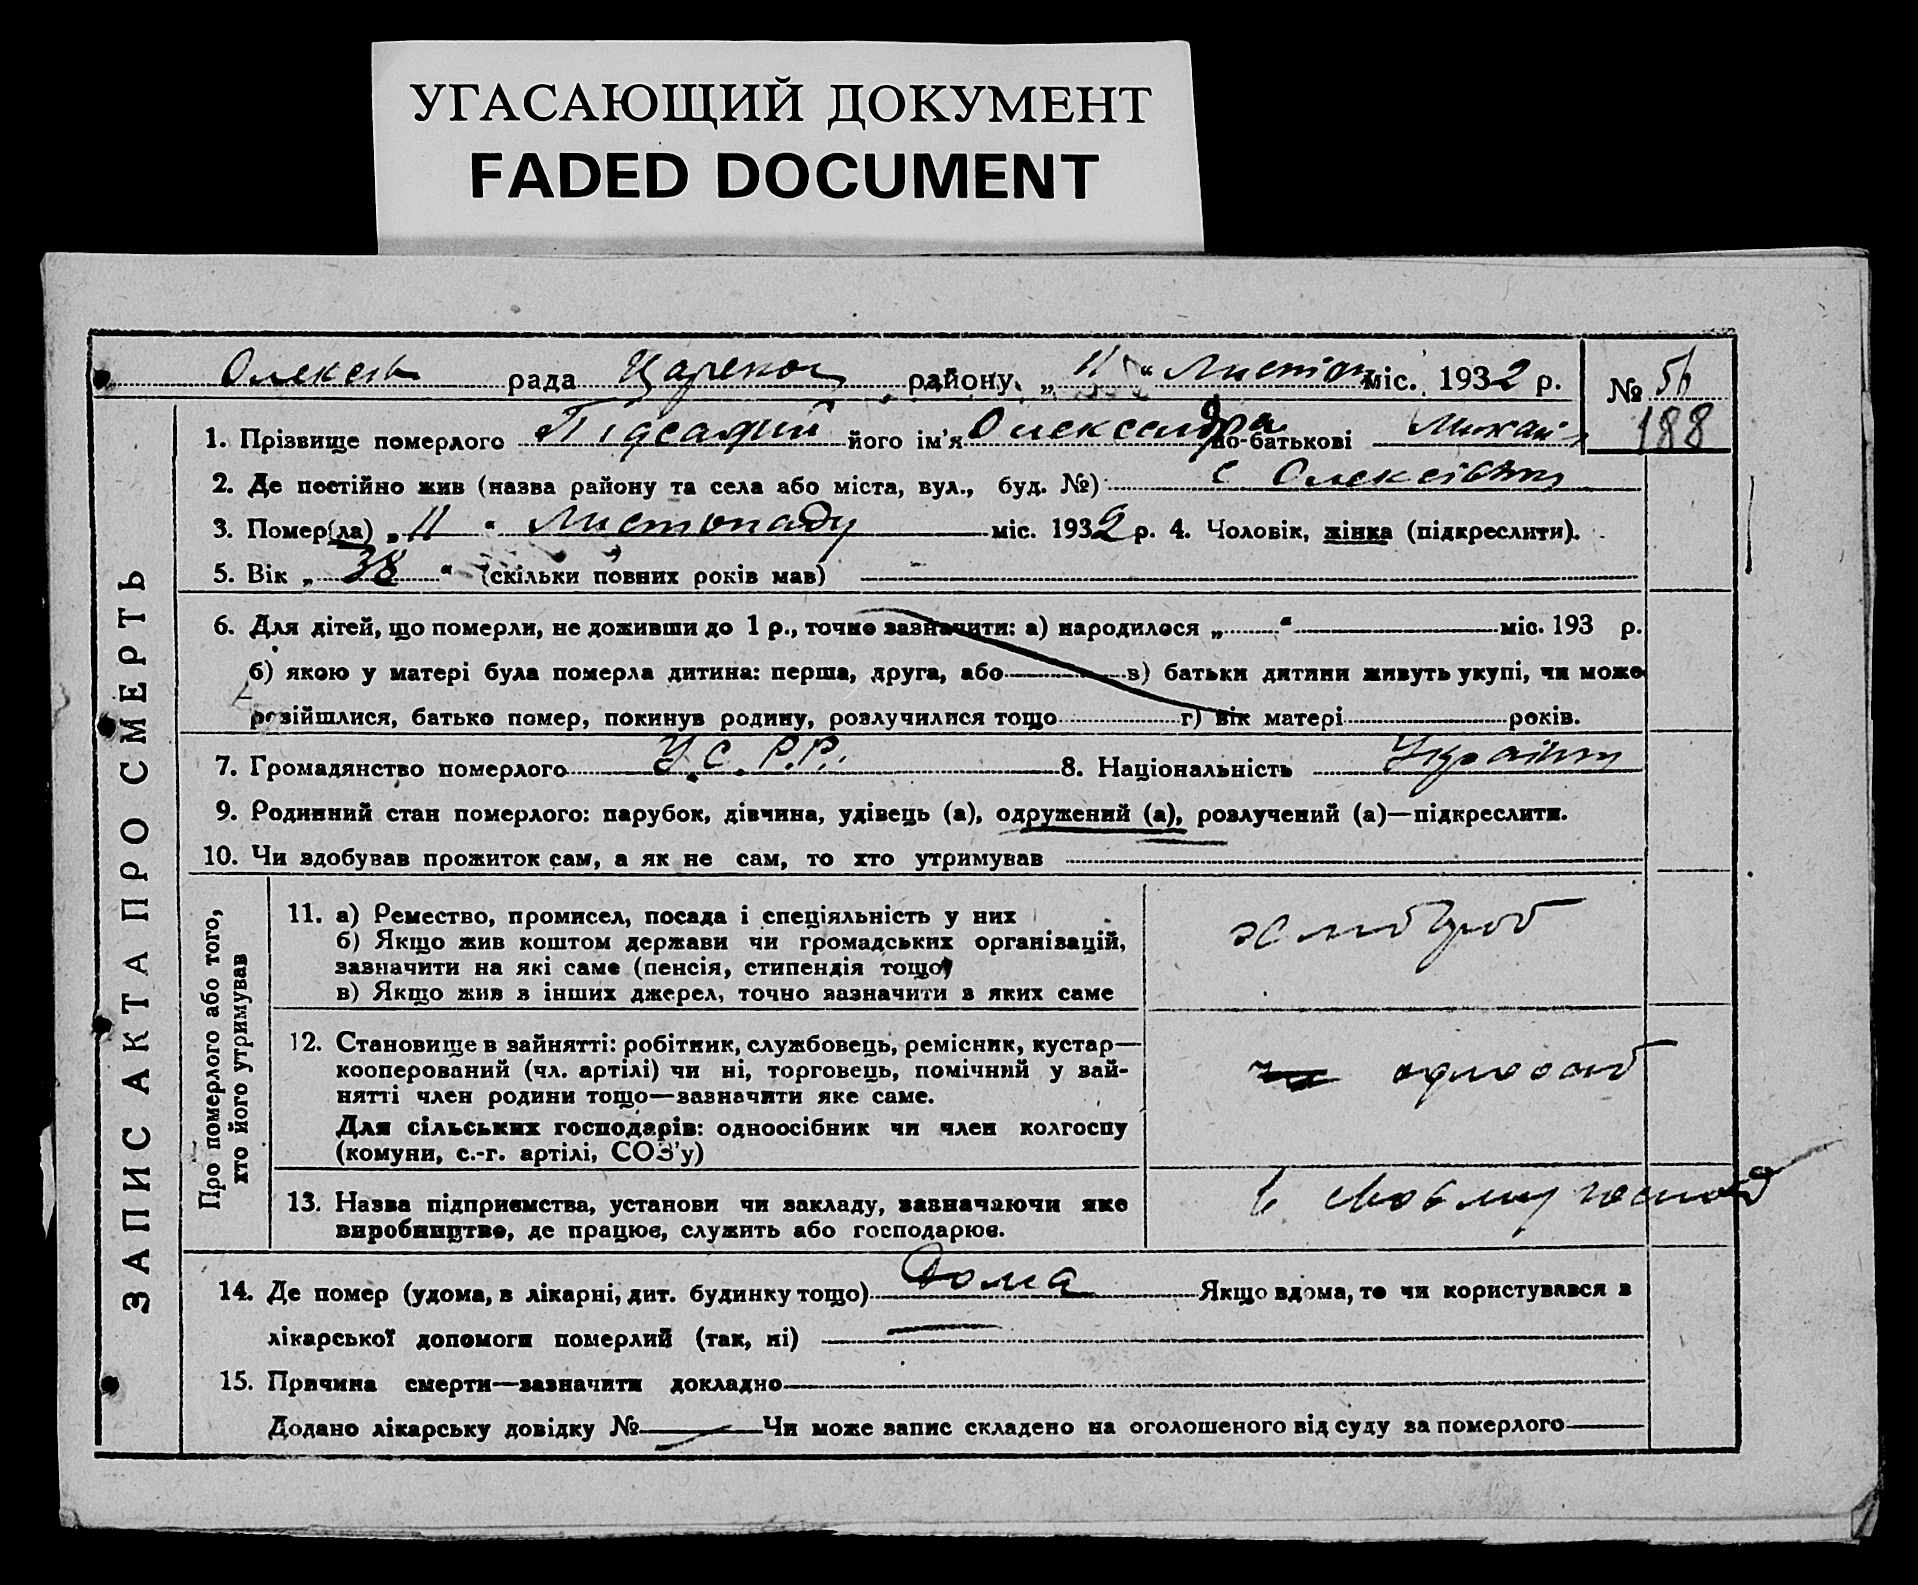 УГАСАЮЩИЙ ДОКУМЕНТ
FADED DOCUMENT
рада району, „ 11 “ Листоп міс. 1932 р.
№ 56
188
1. Прізвище померлого його ім'я Олександра по-батькові
2. Де постійно жив (назва району та села або міста, вул., буд. №) с
3. Помер(ла) „ 11 “ Листопаду міс. 1932 р. 4. Чоловік, жінка (підкреслити).
5. Вік „ 38 “ (скільки повних років мав)
6. Для дітей, що померли, не доживши до 1 р., точно зазначити: а) народилося „ “ міс. 193 р.
б) якою у матері була померла дитина: перша, друга, або в) батьки дитини живуть укупі, чи може
розійшлися, батько помер, покинув родину, розлучилися тощо г) вік матері років.
7. Громадянство померлого У.С.Р.Р. 8. Національність
9. Родинний стан померлого: парубок, дівчина, удівець (а), одружений (а), розлучений (а)—підкреслити.
10. Чи здобував прожиток сам, а як не сам, то хто утримував
ЗАПИС АКТА ПРО СМЕРТЬ
Про померлого або того,
хто його утримував
11. а) Ремество, промисел, посада і спеціяльність у них
б) Якщо жив коштом держави чи громадських організацій,
зазначити на які саме (пенсія, стипендія тощо)
в) Якщо жив з інших джерел, точно зазначити з яких саме
хлібороб
12. Становище в зайнятті: робітник, службовець, ремісник, кустар—
кооперований (чл. артілі) чи ні, торговець, помічний у зай-
нятті член родини тощо—зазначити яке саме.
Для сільських господарів: одноосібник чи член колгоспу
(комуни, с.-г. артілі, СОЗ'у)
одноосіб
13. Назва підприємства, установи чи закладу, зазначаючи яке
виробництво, де працює, служить або господарює.
в своєму господ
14. Де помер (удома, в лікарні, дит. будинку тощо) Дома Якщо вдома, то чи користувався з
лікарської допомоги померлий (так, ні)
15. Причина смерти—зазначити докладно
Додано лікарську довідку № Чи може запис складено на оголошеного від суду за померлого